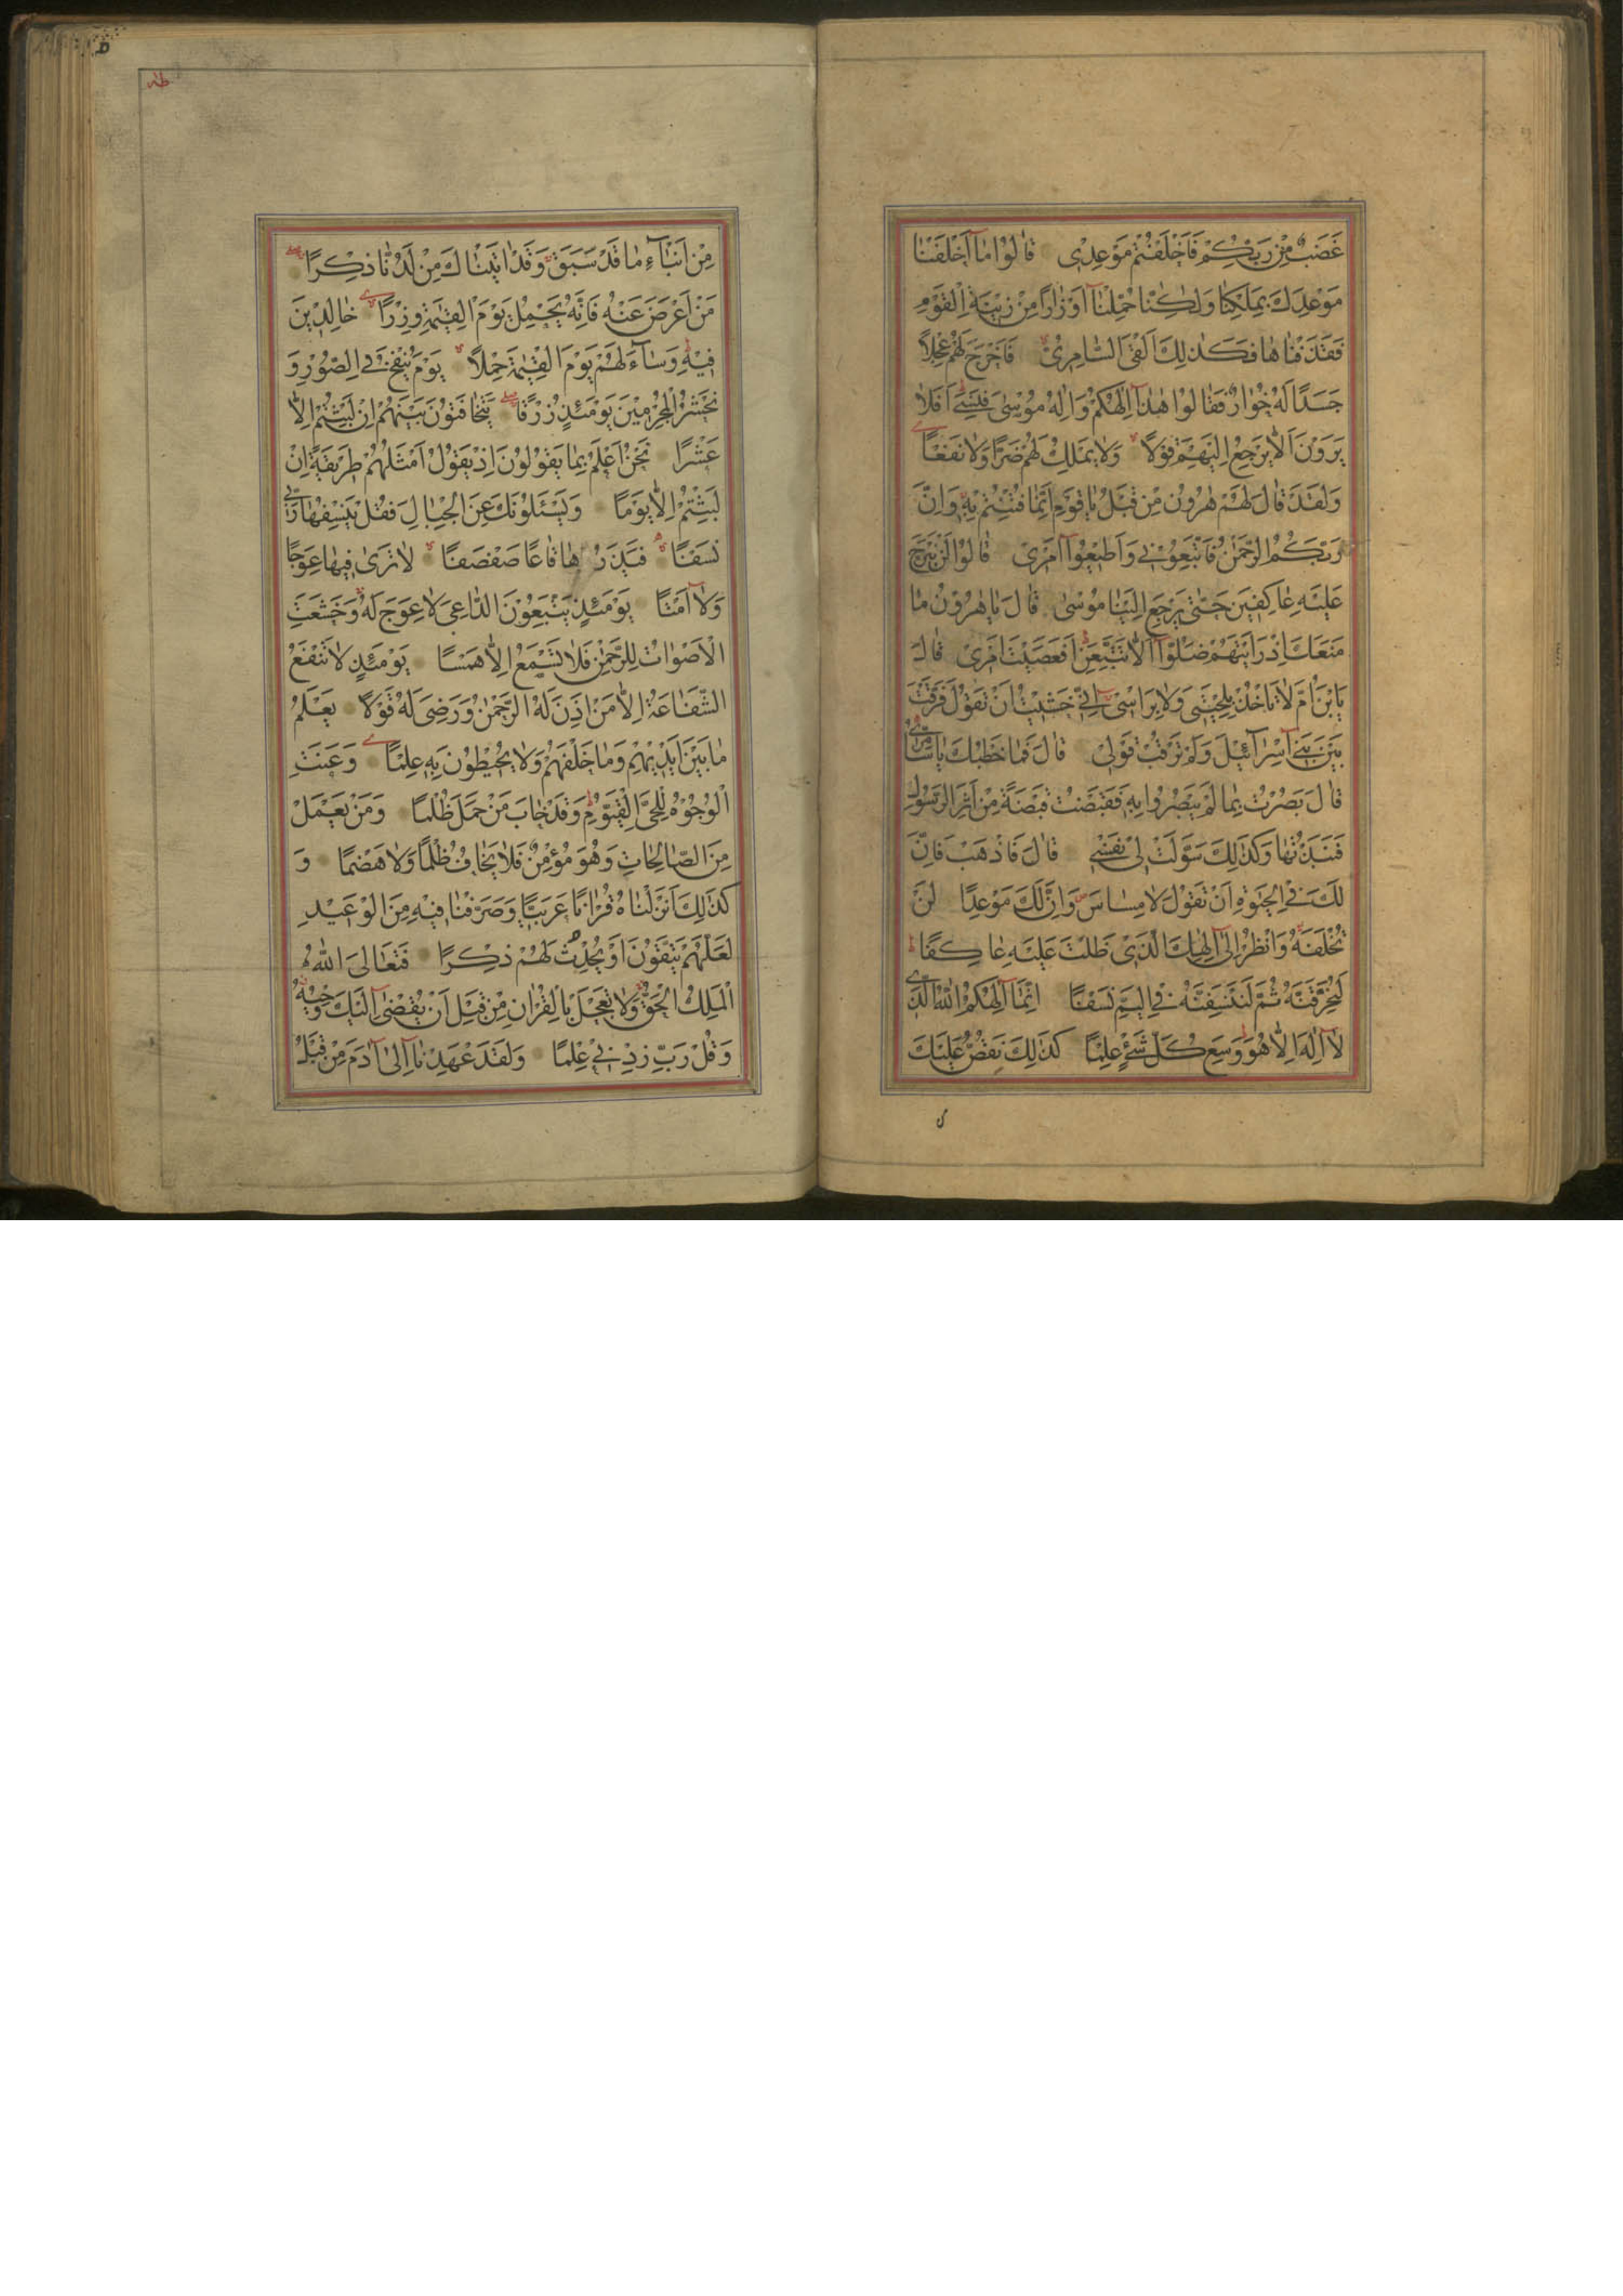 غَضَبٌ مِنْ رَبِّكُمْ فَاَخْلَفْتُمْ مَوْعِدِى قَالُوا مَآ اَخْلَفْنَا
مَوْعِدَكَ بِمَلْكِنَا وَلٰكِنَّا حُمِّلْنَآ اَوْزَارًا مِنْ زِينَةِ الْقَوْمِ
فَقَذَفْنَاهَا فَكَذٰلِكَ اَلْقَى السَّامِرِىُّ فَاَخْرَجَ لَهُمْ عِجْلًا
جَسَدًا لَهُ خُوَارٌ فَقَالُوا هٰذَآ اِلٰهُكُمْ وَاِلٰهُ مُوسٰى فَنَسِىَ اَفَلَا
يَرَوْنَ اَلَّا يَرْجِعُ اِلَيْهِمْ قَوْلًا وَلَا يَمْلِكُ لَهُمْ ضَرًّا وَلَا نَفْعًا
وَلَقَدْ قَالَ لَهُمْ هٰرُونُ مِنْ قَبْلُ يَا قَوْمِ اِنَّمَا فُتِنْتُمْ بِهِ وَاِنَّ
رَبَّكُمُ الرَّحْمٰنُ فَاتَّبِعُونِى وَاَطِيعُوآ اَمْرِى قَالُوا لَنْ نَبْرَحَ
عَلَيْهِ عَاكِفِينَ حَتّٰى يَرْجِعَ اِلَيْنَا مُوسٰى قَالَ يَا هٰرُونُ مَا
مَنَعَكَ اِذْ رَاَيْتَهُمْ ضَلُّوآ اَلَّا تَتَّبِعَنِ اَفَعَصَيْتَ اَمْرِى قَالَ
يَابْنَ اُمَّ لَا تَاْخُذْ بِلِحْيَتِى وَلَا بِرَاْسِى اِنِّى خَشِيتُ اَنْ تَقُولَ فَرَّقْتَ
بَيْنَ بَنِى اِسْرَآئِيلَ وَلَمْ تَرْقُبْ قَوْلِى قَالَ فَمَا خَطْبُكَ يَا سَامِرِىُّ
قَالَ بَصُرْتُ بِمَا لَمْ يَبْصُرُوا بِهِ فَقَبَضْتُ قَبْضَةً مِنْ اَثَرِ الرَّسُولِ
فَنَبَذْتُهَا وَكَذٰلِكَ سَوَّلَتْ لِى نَفْسِى قَالَ فَاذْهَبْ فَاِنَّ
لَكَ فِى الْحَيٰوةِ اَنْ تَقُولَ لَا مِسَاسَ وَاِنَّ لَكَ مَوْعِدًا لَنْ
تُخْلَفَهُ وَانْظُرْ اِلٰٓى اِلٰهِكَ الَّذِى ظَلْتَ عَلَيْهِ عَاكِفًا
لَنُحَرِّقَنَّهُ ثُمَّ لَنَنْسِفَنَّهُ فِى الْيَمِّ نَسْفًا اِنَّمَآ اِلٰهُكُمُ اللّٰهُ الَّذِى
لَآ اِلٰهَ اِلَّا هُوَ وَسِعَ كُلَّ شَىْءٍ عِلْمًا كَذٰلِكَ نَقُصُّ عَلَيْكَ
طه
مِنْ اَنْبَآءِ مَا قَدْ سَبَقَ وَقَدْ اٰتَيْنَاكَ مِنْ لَدُنَّا ذِكْرًا
مَنْ اَعْرَضَ عَنْهُ فَاِنَّهُ يَحْمِلُ يَوْمَ الْقِيٰمَةِ وِزْرًا خَالِدِينَ
فِيهِ وَسَآءَ لَهُمْ يَوْمَ الْقِيٰمَةِ حِمْلًا يَوْمَ يُنْفَخُ فِى الصُّورِ وَ
نَحْشُرُ الْمُجْرِمِينَ يَوْمَئِذٍ زُرْقًا يَتَخَافَتُونَ بَيْنَهُمْ اِنْ لَبِثْتُمْ اِلَّا
عَشْرًا نَحْنُ اَعْلَمُ بِمَا يَقُولُونَ اِذْ يَقُولُ اَمْثَلُهُمْ طَرِيقَةً اِنْ
لَبِثْتُمْ اِلَّا يَوْمًا وَيَسْئَلُونَكَ عَنِ الْجِبَالِ فَقُلْ يَنْسِفُهَا رَبِّى
نَسْفًا فَيَذَرُهَا قَاعًا صَفْصَفًا لَا تَرٰى فِيهَا عِوَجًا
وَلَآ اَمْتًا يَوْمَئِذٍ يَتَّبِعُونَ الدَّاعِىَ لَا عِوَجَ لَهُ وَخَشَعَتِ
الْاَصْوَاتُ لِلرَّحْمٰنِ فَلَا تَسْمَعُ اِلَّا هَمْسًا يَوْمَئِذٍ لَا تَنْفَعُ
الشَّفَاعَةُ اِلَّا مَنْ اَذِنَ لَهُ الرَّحْمٰنُ وَرَضِىَ لَهُ قَوْلًا يَعْلَمُ
مَا بَيْنَ اَيْدِيهِمْ وَمَا خَلْفَهُمْ وَلَا يُحِيطُونَ بِهِ عِلْمًا وَعَنَتِ
الْوُجُوهُ لِلْحَىِّ الْقَيُّومِ وَقَدْ خَابَ مَنْ حَمَلَ ظُلْمًا وَمَنْ يَعْمَلْ
مِنَ الصَّالِحَاتِ وَهُوَ مُؤْمِنٌ فَلَا يَخَافُ ظُلْمًا وَلَا هَضْمًا وَ
كَذٰلِكَ اَنْزَلْنَاهُ قُرْاٰنًا عَرَبِيًّا وَصَرَّفْنَا فِيهِ مِنَ الْوَعِيدِ
لَعَلَّهُمْ يَتَّقُونَ اَوْ يُحْدِثُ لَهُمْ ذِكْرًا فَتَعَالَى اللّٰهُ
الْمَلِكُ الْحَقُّ وَلَا تَعْجَلْ بِالْقُرْاٰنِ مِنْ قَبْلِ اَنْ يُقْضٰٓى اِلَيْكَ وَحْيُهُ
وَقُلْ رَبِّ زِدْنِى عِلْمًا وَلَقَدْ عَهِدْنَآ اِلٰٓى اٰدَمَ مِنْ قَبْلُ